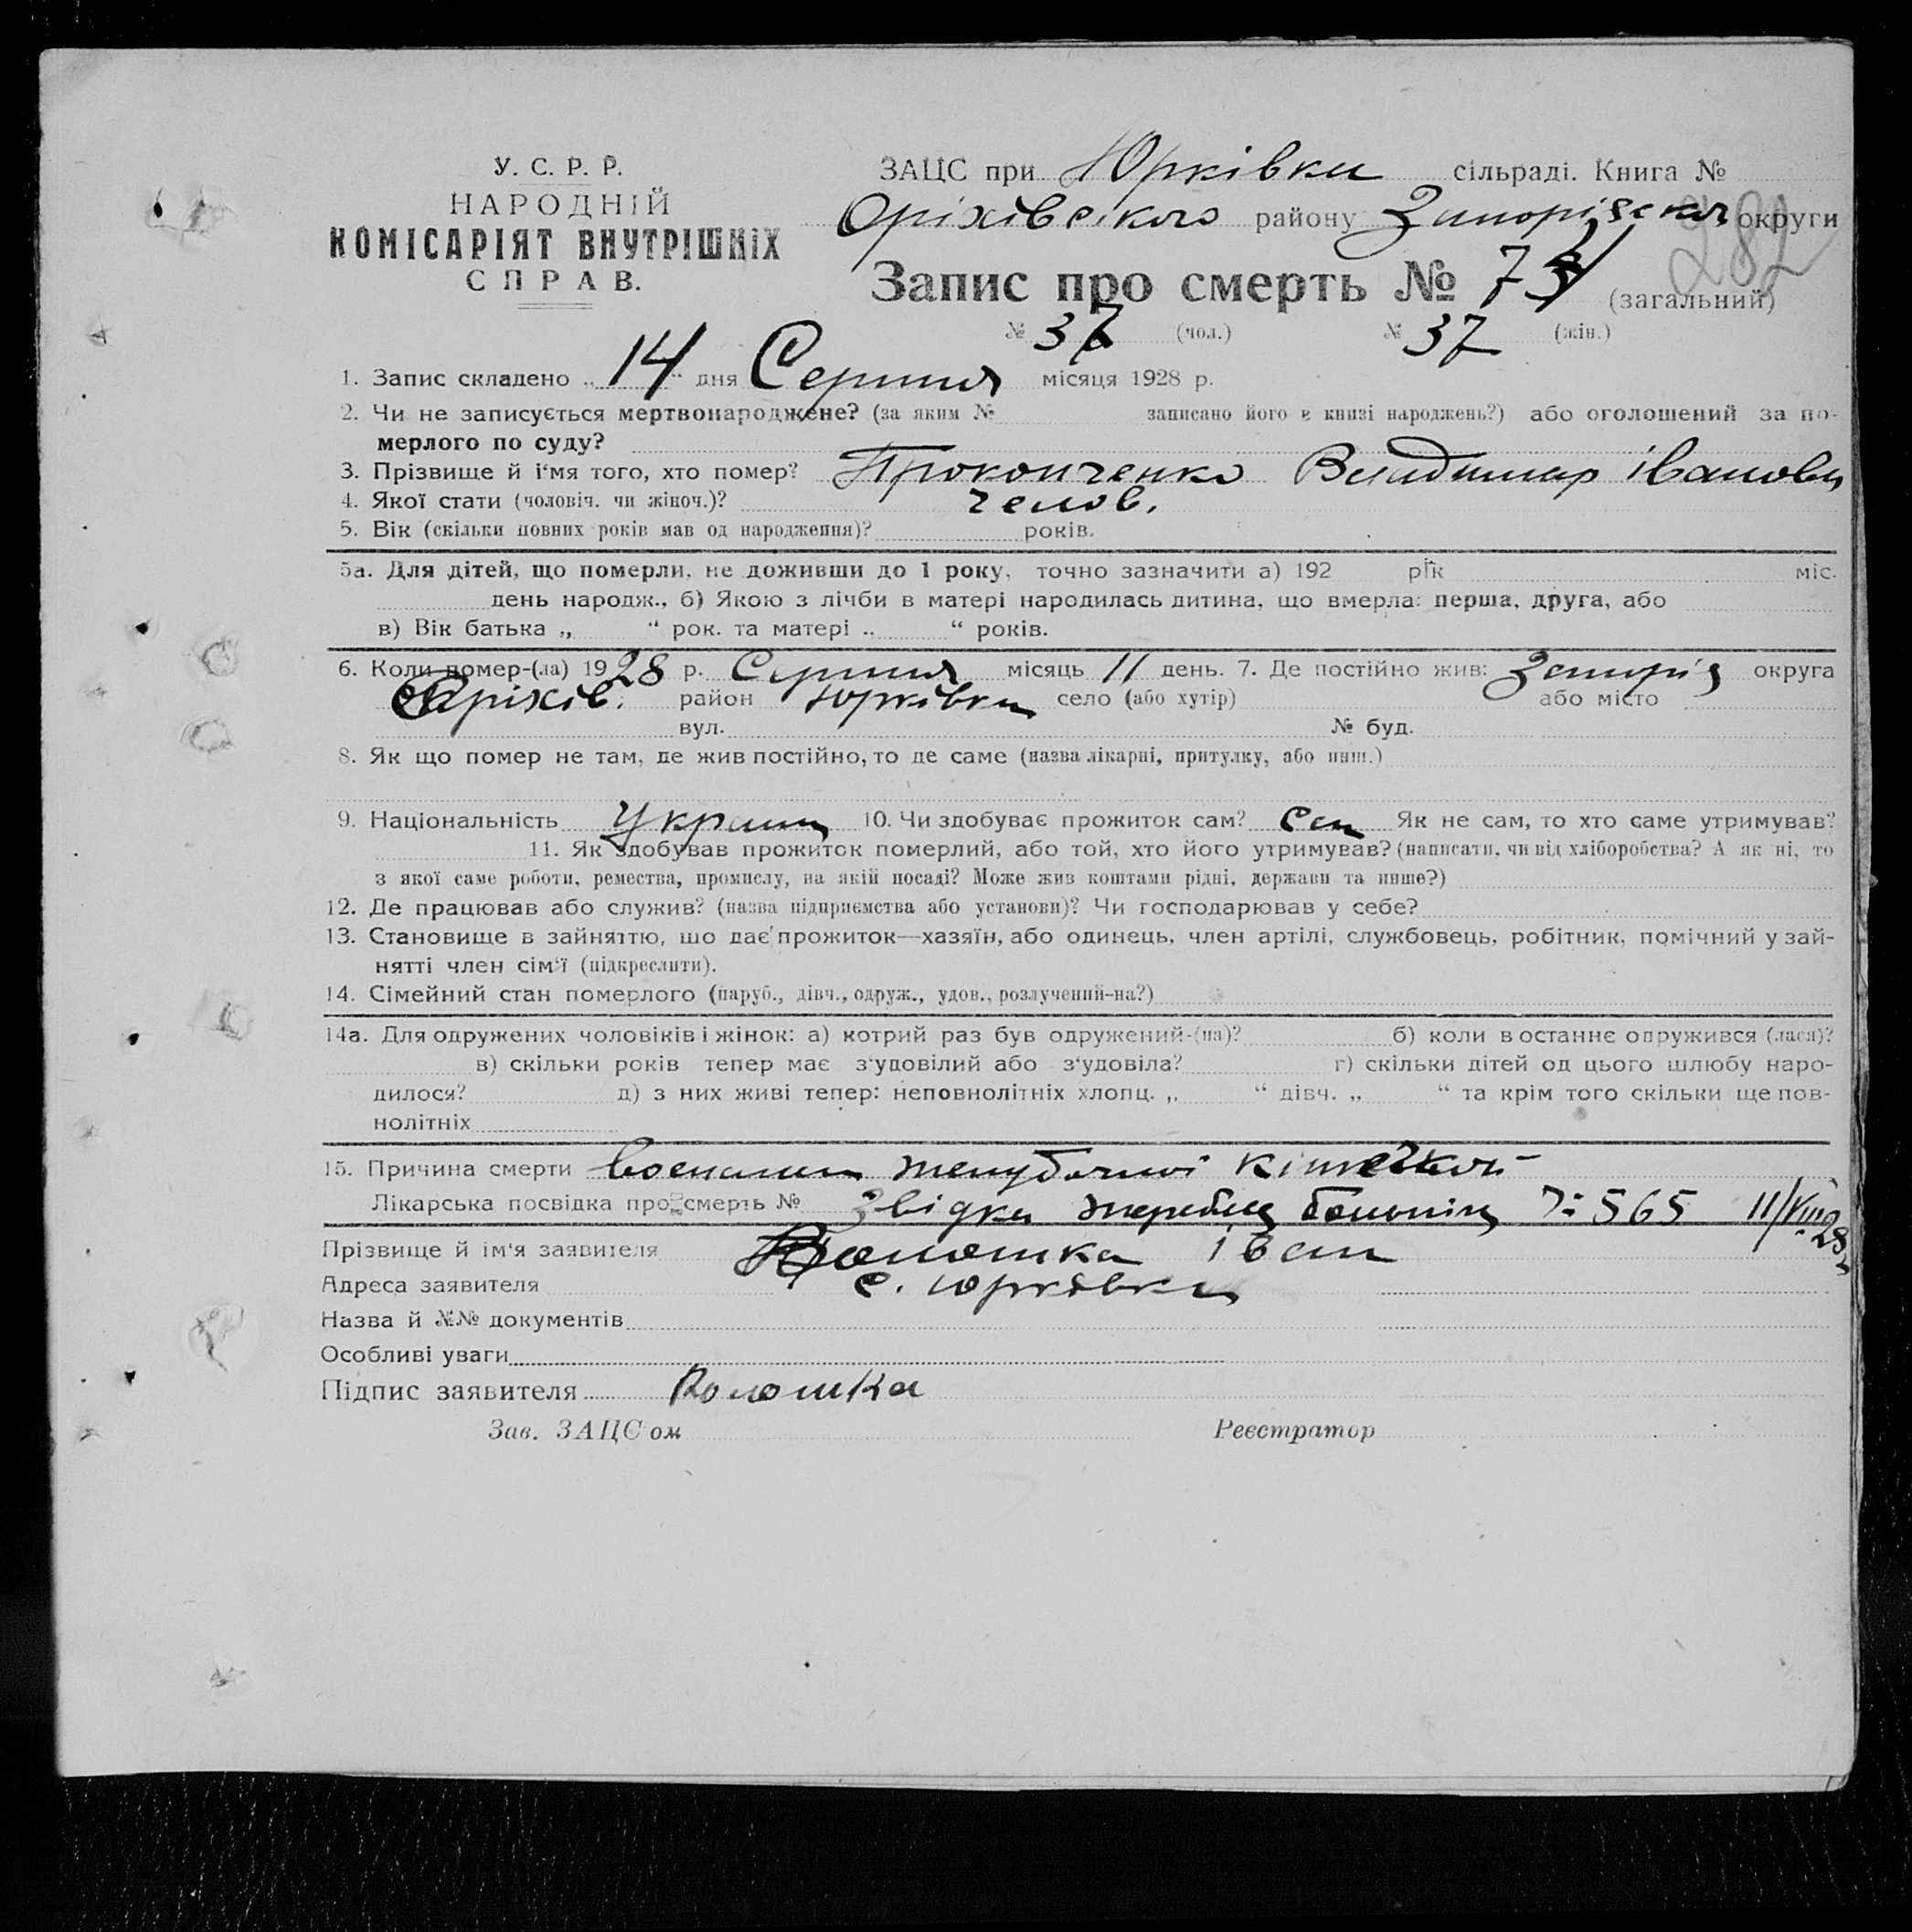 У. С. Р. Р.
НАРОДНІЙ
КОМІСАРІЯТ ВНУТРІШНІХ
СПРАВ.
ЗАЦС при Юрківки сільраді. Книга №
Оріхівського району Запорізького округи
282
Запис про смерть № 74 (загальний)
№ 37 (чол.) № 37 (жін.)
1. Запис складено „14“ дня Серпня місяця 1928 р.
2. Чи не записується мертвонароджене? (за яким № записано його в книзі народжень?) або оголошений за по-
мерлого по суду?
3. Прізвище й і'мя того, хто помер? Прокопченко Владимир Іванови
4. Якої стати (чоловіч. чи жіноч.)? челов.
5. Вік (скільки повних років мав од народження)? років.
5а. Для дітей, що померли, не доживши до 1 року, точно зазначити а) 192 рік міс.
день народж., б) Якою з лічби в матері народилась дитина, що вмерла: перша, друга, або
в) Вік батька „ “ рок. та матері „ “ років.
6. Коли помер-(ла) 1928 р. Серпня місяць 11 день. 7. Де постійно жив: Запоріз округа
Оріхів. район Юрківки село (або хутір) або місто
вул. № буд.
8. Як що помер не там, де жив постійно, то де саме (назва лікарні, притулку, або инш.)
9. Національність Украин 10. Чи здобуває прожиток сам? Сам Як не сам, то хто саме утримував?
11. Як здобував прожиток померлий, або той, хто його утримував? (написати, чи від хліборобства? А як ні, то
з якої саме роботи, ремества, промислу, на якій посаді? Може жив коштами рідні, держави та инше?)
12. Де працював або служив? (назва підприємства або установи)? Чи господарював у себе?
13. Становище в зайняттю, що дає прожиток—хазяїн, або одинець, член артілі, службовець, робітник, помічний у зай-
нятті член сім'ї (підкреслити).
14. Сімейний стан померлого (паруб., дівч., одруж., удов., розлучений-на?)
14а. Для одружених чоловіків і жінок: а) котрий раз був одружений-(на)? б) коли в останнє одружився (лася)?
в) скільки років тепер має з'удовілий або з'удовіла? г) скільки дітей од цього шлюбу наро-
дилося? д) з них живі тепер: неповнолітніх хлопц. „ “ дівч. „ “ та крім того скільки ще пов-
нолітніх
15. Причина смерти
Лікарська посвідка про смерть № Звідка № 565 11/VIII 28
Прізвище й ім'я заявителя Волошка Іван
Адреса заявителя с. Юрківки
Назва й №№ документів
Особливі уваги
Підпис заявителя Волошка
Зав. ЗАЦС'ом Реєстратор